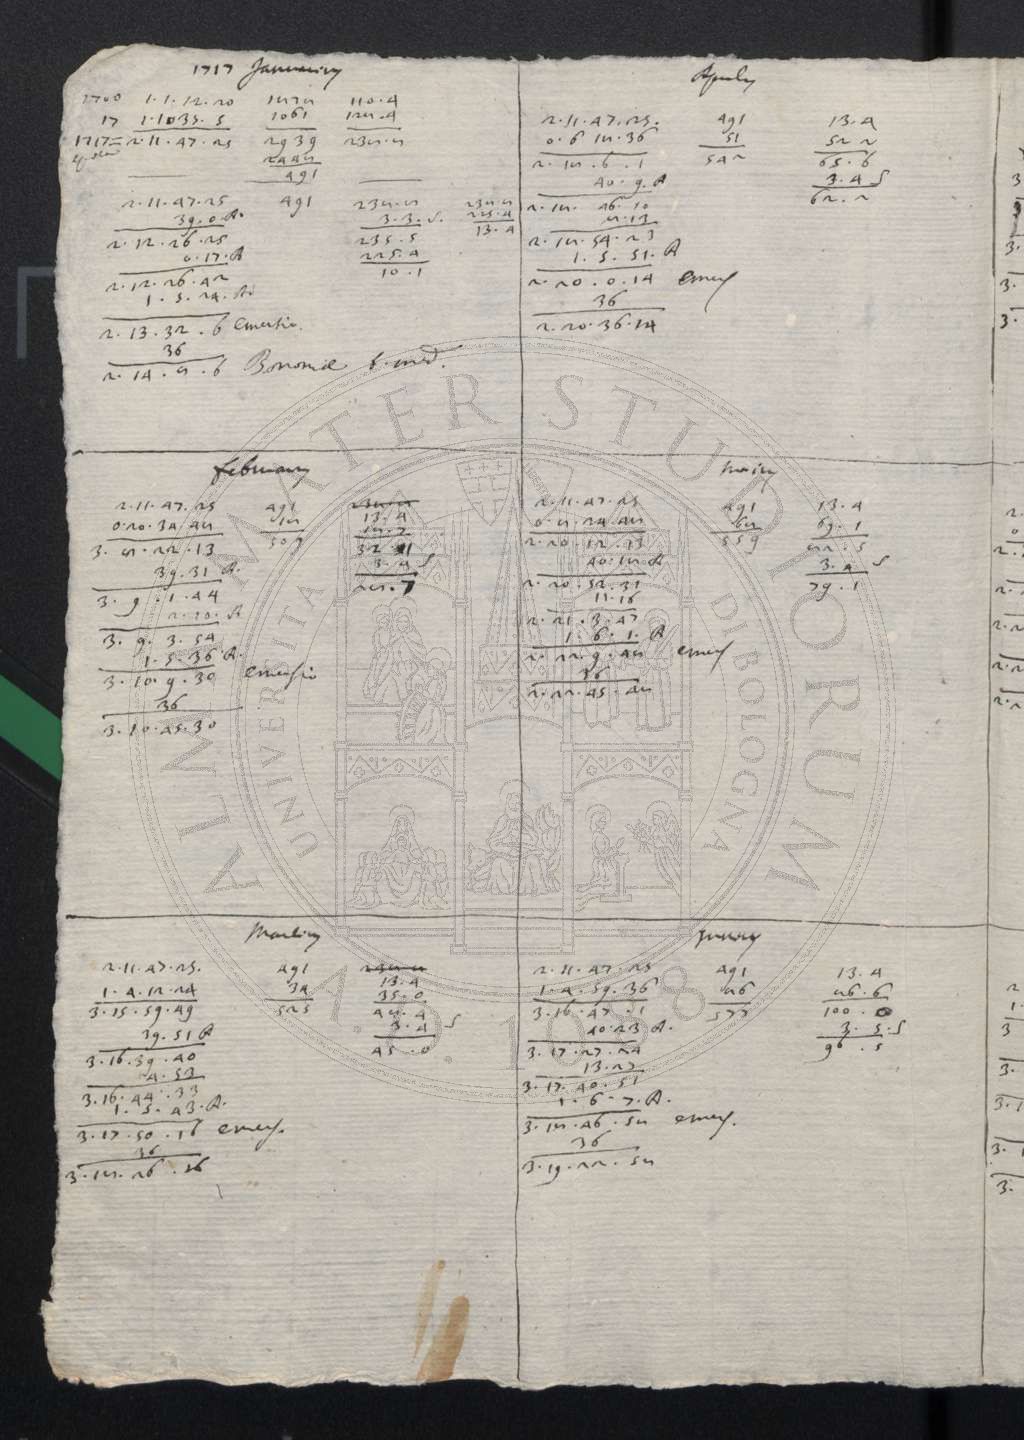 1717 Januarius
1700 1.1.12.20 1878 110.4
17 1.10.35.5 1061 128.4
1717= 2.11.47.25 2939 238.8
2448
491
2.11.47.25 491 238.8 238.8
39.0.A. 3.3.S. 225.4
2.12.26.25 235.5 13.4
0.17.A 225.4
2.12.26.42 10.1
1.5.24.A.
2.13.32.6 Emersio.
36
2.14.8.6 Bononiae t. med.
February
2.11.47.25 491 238.8
0.20.34.48 18 13.4
3.8.22.13 509 18.7
39.31 A. 32.1
3.9.1.44 3.4 S
2.10.A 28.7
3.9.3.54
1.5.36 A.
3.10.9.30 Emersio
36
3.10.45.30
Martius
2.11.47.25. 491 238.8
1.4.12.24 34 13.4
3.15.59.49 525 35.0
39.51 A 48.4
3.16.39.40 3.4 S
4.53 45.0
3.16.44.33
1.5.43.A.
3.17.50.16 emers.
36
3.18.26.16
Aprilis
2.11.47.25. 491 13.4
0.6.18.36 51 52.2
2.18.6.1 542 65.6
40.9.A 3.4 S
2.18.46.10 62.2
8.13
2.18.54.23
1.5.51.A
2.20.0.14 Emers
36
2.20.36.14
Maius
2.11.47.25 491 13.4
0.8.24.48 68 69.1
2.20.12.13 559 82.5
40.18.A 3.4 S
2.20.52.31 79.1
11.16
2.21.3.47
1.6.1.A
2.22.9.48 emers
36
2.22.45.48
Junius
2.11.47.25 491 13.4
1.4.59.36 86 86.6
3.16.47.1 577 100.0
40.23 A. 3.5.S
3.17.27.24 96.5
13.27
3.17.40.51
1.6.7.A.
3.18.46.58 emers.
36
3.19.22.58
ALMA MATER STUDIORUM
UNIVERSITA DI BOLOGNA
A.D. 1088